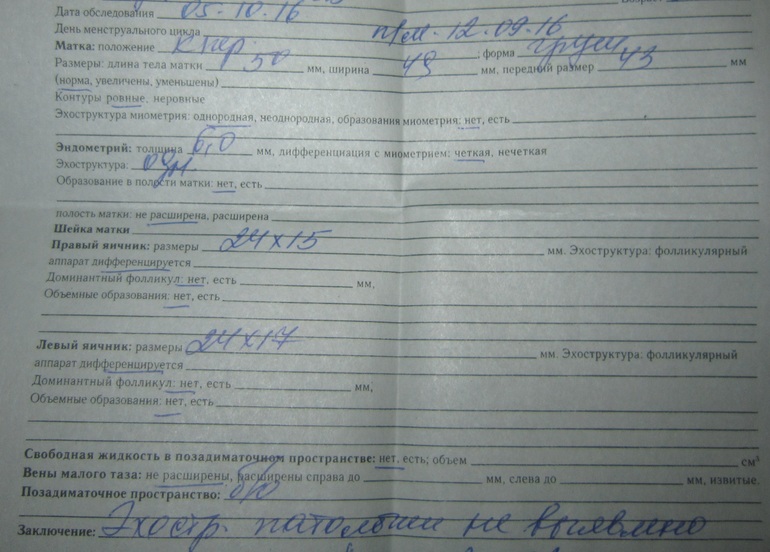 Дата обследования 05-10-16
День менструального цикла п/м - 12-09-16
Матка: положение к пер. ; форма груш
Размеры: длина тела матки 50 мм, ширина 49 мм, передний размер 43 мм
(норма, увеличены, уменьшены)
Контуры ровные, неровные
Эхоструктура миометрия: однородная, неоднородная, образования миометрия: нет, есть
Эндометрий: толщина 6,0 мм, дифференциация с миометрием: четкая, нечеткая
Эхоструктура: одн
Образование в полости матки: нет, есть
полость матки: не расширена, расширена
Шейка матки
Правый яичник: размеры 24х15 мм. Эхоструктура: фолликулярный
аппарат дифференцируется
Доминантный фолликул: нет, есть мм,
Объемные образования: нет, есть
Левый яичник: размеры 24х17 мм. Эхоструктура: фолликулярный
аппарат дифференцируется
Доминантный фолликул: нет, есть мм,
Объемные образования: нет, есть
Свободная жидкость в позадиматочном пространстве: нет, есть; объем см³
Вены малого таза: не расширены, расширены справа до мм, слева до мм, извитые.
Позадиматочное пространство: б/о
Заключение: Эхостр. патологии не выявлено